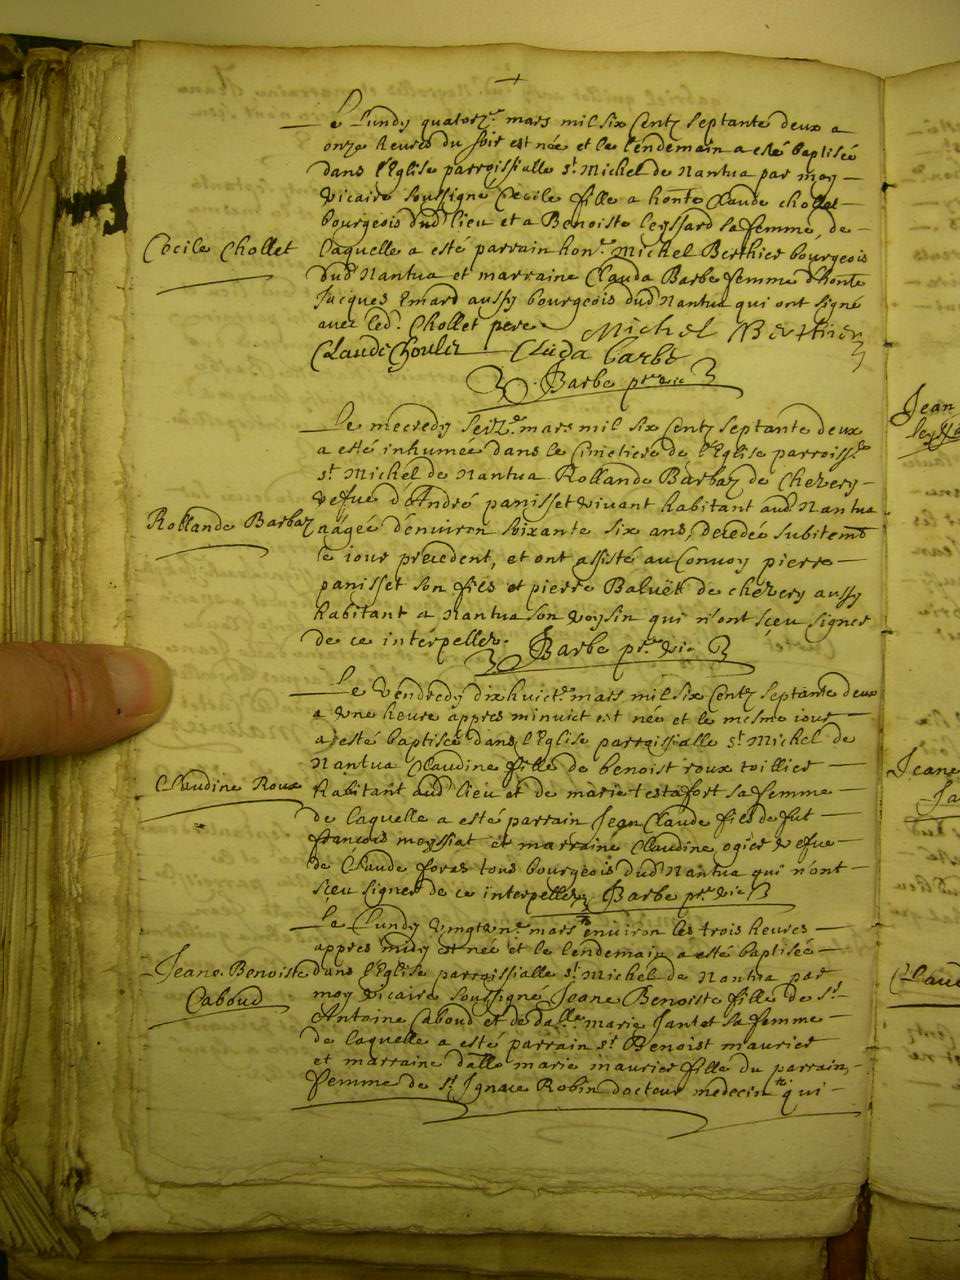 Le Lundy quatorze mars mil six centz septante deux a
onze heures du soir est née et le lendemain a esté baptisée
dans l'Eglise parroissialle st Michel de Nantua par moy
vicaire soussigné Cecile fille a honte Claude Chollet
bourgeois dud lieu et a Benoiste leyssard sa femme, de
Cecile Chollet
laquelle a esté parrain hon.e Michel Berthier bourgeois
dud Nantua et marraine Clauda Barbe femme d'honte
Jacques Emard aussy bourgeois dud Nantua qui ont signé
avec led. Chollet pere
Michel Berthier
Claude Choulet Clauda barbe
Barbe pr. vic
Le mecredy seiz.e mars mil six centz septante deux
a esté inhumée dans le Cimetiere de l'Eglise parroiss.
st Michel de Nantua Rollande Barbaz de Chezery
vefue d'André panisset vivant habitant aud Nantua
Rollande Barbaz
aâgée d'enuiron soixante six ans, decedée subitemt
le iour precedent, et ont assisté au Convoy pierre
panisset son fils et pierre Baluët de chezery aussy
habitant a Nantua son voysin qui n'ont sçeu signer
de ce interpellez.
Barbe pr. vic
Le Vendredy dixhuict.e mars mil six centz septante deux
a vne heure appres minuict est née et le mesme iour
a esté baptisée dans l'Eglise parroissialle st Michel de
Nantua Claudine fille de benoist roux toillier
Claudine Roux
habitant aud lieu et de marie testafort sa femme
de laquelle a esté parrain Jean Claude fils de fut
françois moyssiat et marraine Claudine ogier vefue
de Claude foras tous bourgeois dud Nantua qui n'ont
sçeu signer de ce interpellez
Barbe pr. vic
Le Lundy vingtvn.e mars environ les trois heures
appres midy est née et le lendemain a esté baptisée
Jeane Benoiste
Caboud
dans l'Eglise parroissialle st Michel de Nantua par
moy vicaire soussigné Jeane Benoiste fille de sr
Antoine Caboud et de dalle marie Jantet sa femme
de laquelle a esté parrain sr Benoist maurier
et marraine dalle marie maurier fille du parrain,
femme de sr Ignace Robin docteur medecin qui
Jean
Jeane
Claud